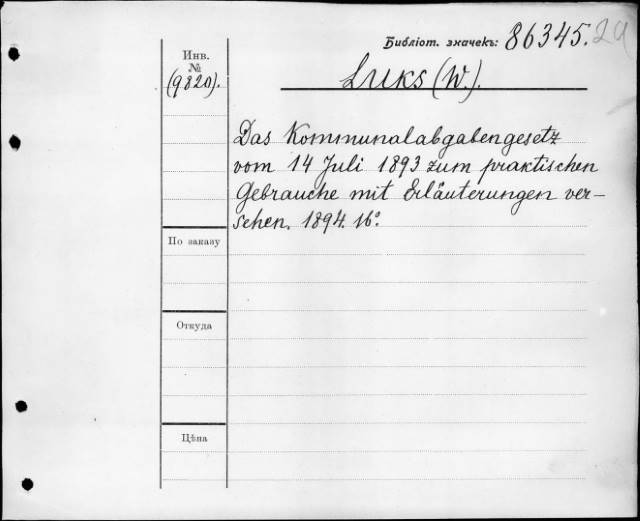 Библіот. значекъ: 86345. 29
Инв.
№
(9820).
Luks (W.).
Das Kommunalabgabengesetz
vom 14 Juli 1893 zum praktischen
Gebrauche mit Erläuterungen ver-
sehen. 1894. 16°.
По заказу
Откуда
Цѣна